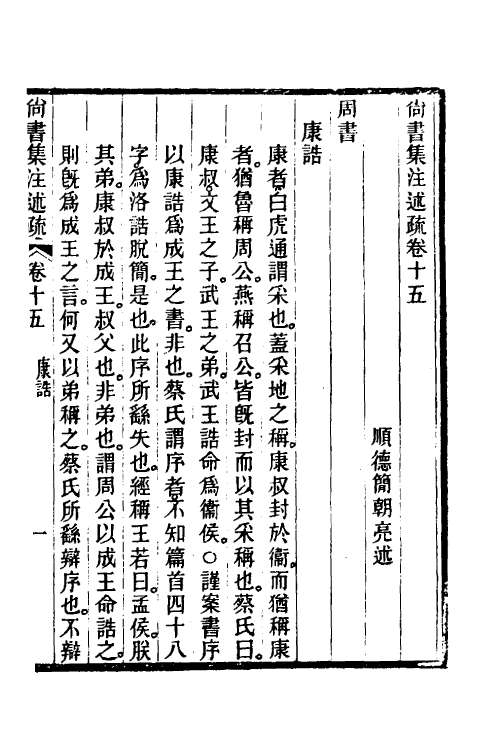 尙書集注述疏卷十五
順德簡朝亮述
周書
康誥
康者白虎通謂采也。蓋采地之稱。康叔封於衞。而猶稱康
者。猶魯稱周公。燕稱召公。皆旣封而以其采稱也。蔡氏曰。
康叔文王之子。武王之弟。武王誥命爲衞侯。○謹案書序
以康誥爲成王之書。非也。蔡氏謂序者不知篇首四十八
字。爲洛誥脫簡。是也。此序所繇失也。經稱王若曰。孟侯。朕
其弟。康叔於成王。叔父也。非弟也。謂周公以成王命誥之。
則旣爲成王之言。何又以弟稱之。蔡氏所繇辯序也。不辯
尙書集注述疏 卷十五 康誥 一